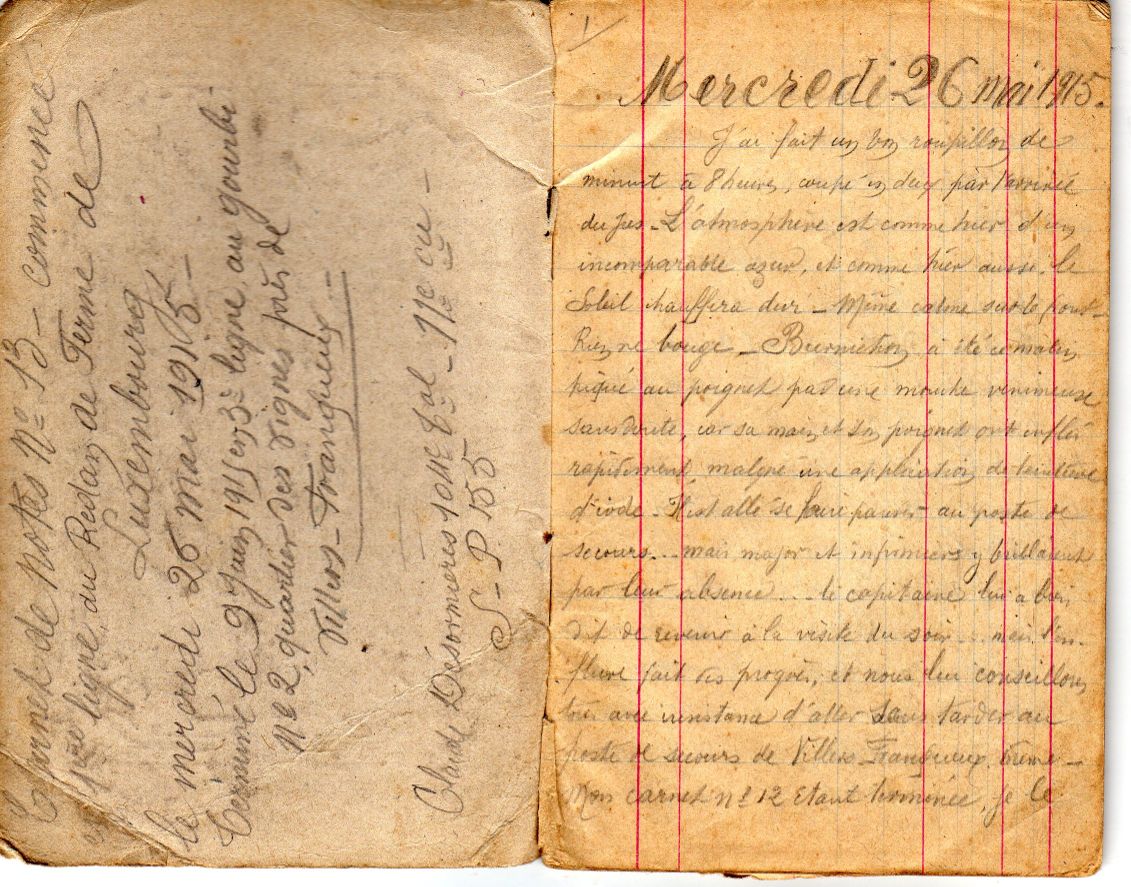 Carnet de notes N° 13 - commencé
en 1re ligne, du Redan de Ferme de
Luxembourg
le mercredi 26 mai 1915 -
Terminé le 9 Juin 1915 en 3e ligne, au gourbi
N° 2, quartier des Vignes près de
Villers-Franqueux -
Claude Désormières 104e Bal - 11e Cie -
S - P. 155
1
Mercredi 26 mai 1915.
J'ai fait un bon roupillon de
minuit à 8 heures, coupé en deux par l'arrivée
du jus - L'atmosphère est comme hier d'un
incomparable azur, et comme hier aussi, le
Soleil chauffera dur - Même calme sur le front -
Rien ne bouge - Burnichon a été ce matin
piqué au poignet par une mouche venimeuse
sans doute, car sa main et son poignet ont enflé
rapidement, malgré une application de teinture
d'iode - Il est allé se faire panser au poste de
secours... mais major et infirmiers y brillaient
par leur absence... le capitaine lui a bien
dit de revenir à la visite du soir... mais l'en-
flure fait des progrès, et nous lui conseillons
tous avec instance d'aller sans tarder au
poste de secours de Villers-Franqueux
Mon carnet n° 12 étant terminée, je le